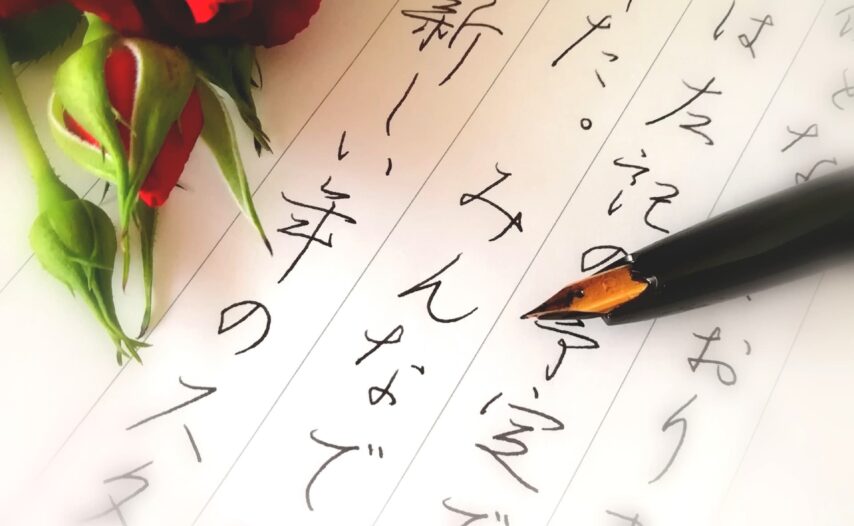 おり
は左記の予定で
た。みんなで
新しい年のスタ